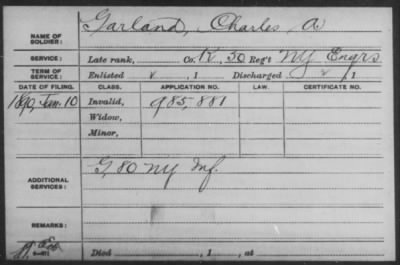 NAME OF SOLDIER: Garland, Charles A.
SERVICE: Late rank, Co. K, 50 Reg't NY Engrs
TERM OF SERVICE: Enlisted , 1 Discharged , 1
DATE OF FILING. CLASS. APPLICATION NO. LAW. CERTIFICATE NO.
1890, Jan. 10 Invalid, 985,881
Widow,
Minor,
ADDITIONAL SERVICES: G, 80 NY Inf.
REMARKS:
Died , 1 , at